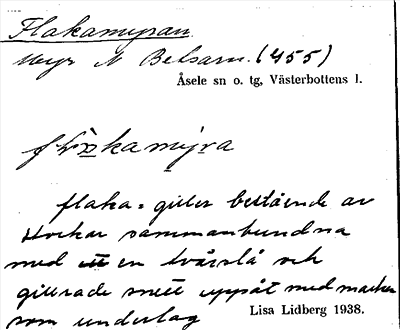 Flakamyran
Myr N Belsarn. (455)
Åsele sn o. tg, Västerbottens l.
kamyra
flaka = giller bestående av
stockar sammanbundna
med en tvärslå och
gillrade snett uppåt med marken
som underlag
Lisa Lidberg 1938.